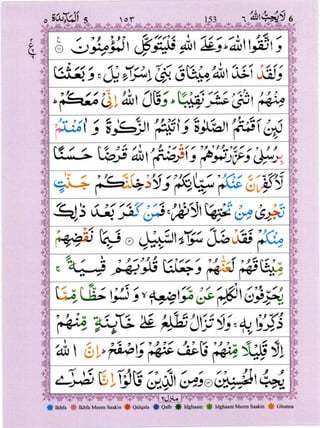 المآئدة ٥ 5 ١٥٣ 153 لا يحب الله ٦ 6
وَاتَّقُوا اللّٰهَ ؕ وَعَلَى اللّٰهِ فَلْيَتَوَكَّلِ الْمُؤْمِنُوْنَ
وَلَقَدْ اَخَذَ اللّٰهُ مِيْثَاقَ بَنِىْٓ اِسْرَآءِيْلَ ۚ وَبَعَثْنَا
مِنْهُمُ اثْنَىْ عَشَرَ نَقِيْبًا ؕ وَقَالَ اللّٰهُ اِنِّىْ مَعَكُمْ ؕ
لَئِنْ اَقَمْتُمُ الصَّلٰوةَ وَاٰتَيْتُمُ الزَّكٰوةَ وَاٰمَنْتُمْ
بِرُسُلِىْ وَعَزَّرْتُمُوْهُمْ وَاَقْرَضْتُمُ اللّٰهَ قَرْضًا حَسَنًا
لَّاُكَفِّرَنَّ عَنْكُمْ سَيِّاٰتِكُمْ وَلَاُدْخِلَنَّكُمْ جَنّٰتٍ
تَجْرِىْ مِنْ تَحْتِهَا الْاَنْهٰرُ ۚ فَمَنْ كَفَرَ بَعْدَ ذٰلِكَ
مِنْكُمْ فَقَدْ ضَلَّ سَوَآءَ السَّبِيْلِ فَبِمَا نَقْضِهِمْ
مِّيْثَاقَهُمْ لَعَنّٰهُمْ وَجَعَلْنَا قُلُوْبَهُمْ قٰسِيَةً ۚ
يُحَرِّفُوْنَ الْكَلِمَ عَنْ مَّوَاضِعِهٖ ۙ وَنَسُوْا حَظًّا مِّمَّا
ذُكِّرُوْا بِهٖ ۚ وَلَا تَزَالُ تَطَّلِعُ عَلٰى خَآئِنَةٍ مِّنْهُمْ
اِلَّا قَلِيْلًا مِّنْهُمْ فَاعْفُ عَنْهُمْ وَاصْفَحْ ؕ اِنَّ اللّٰهَ
يُحِبُّ الْمُحْسِنِيْنَ وَمِنَ الَّذِيْنَ قَالُوْٓا اِنَّا نَصٰرٰٓى
منزل ٢
Ikhfa Ikhfa Meem Saakin Qalqala Qalb Idgham Idghaam Meem Saakin Ghunna